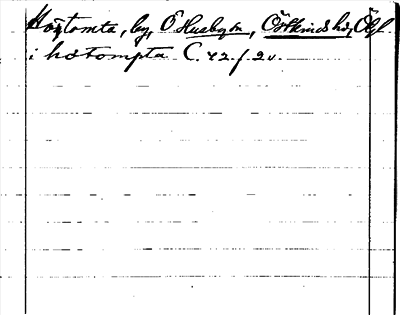 Högtomta, by, Ö Husby sn, Östkinds hd, Ögl.
i hötompta C. 42. f. 2 v.